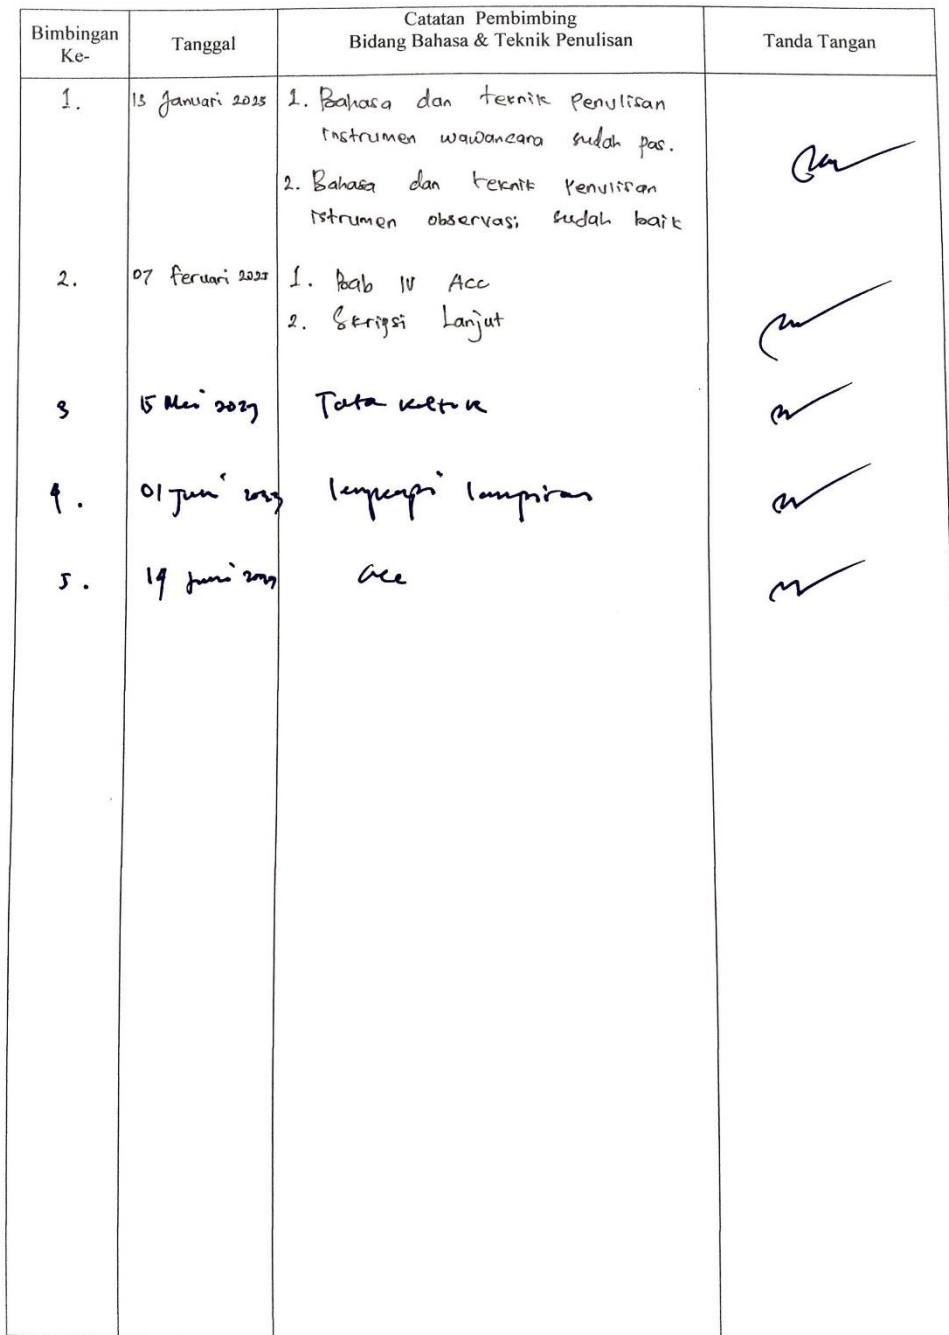 Bimbingan Ke-
Tanggal
Catatan Pembimbing
Bidang Bahasa & Teknik Penulisan
Tanda Tangan
1. 13 Januari 2023 1. Bahasa dan teknik Penulisan
Instrumen wawancara sudah pas.
2. Bahasa dan teknik Penulisan
istrumen observasi sudah baik
2. 07 feruari 2023 1. Bab IV Acc
2. Skripsi Lanjut
3 15 Mei 2023 Tata
4. 01 Juni 2023 lengkapi lampiran
5. 19 Juni 2023 acc